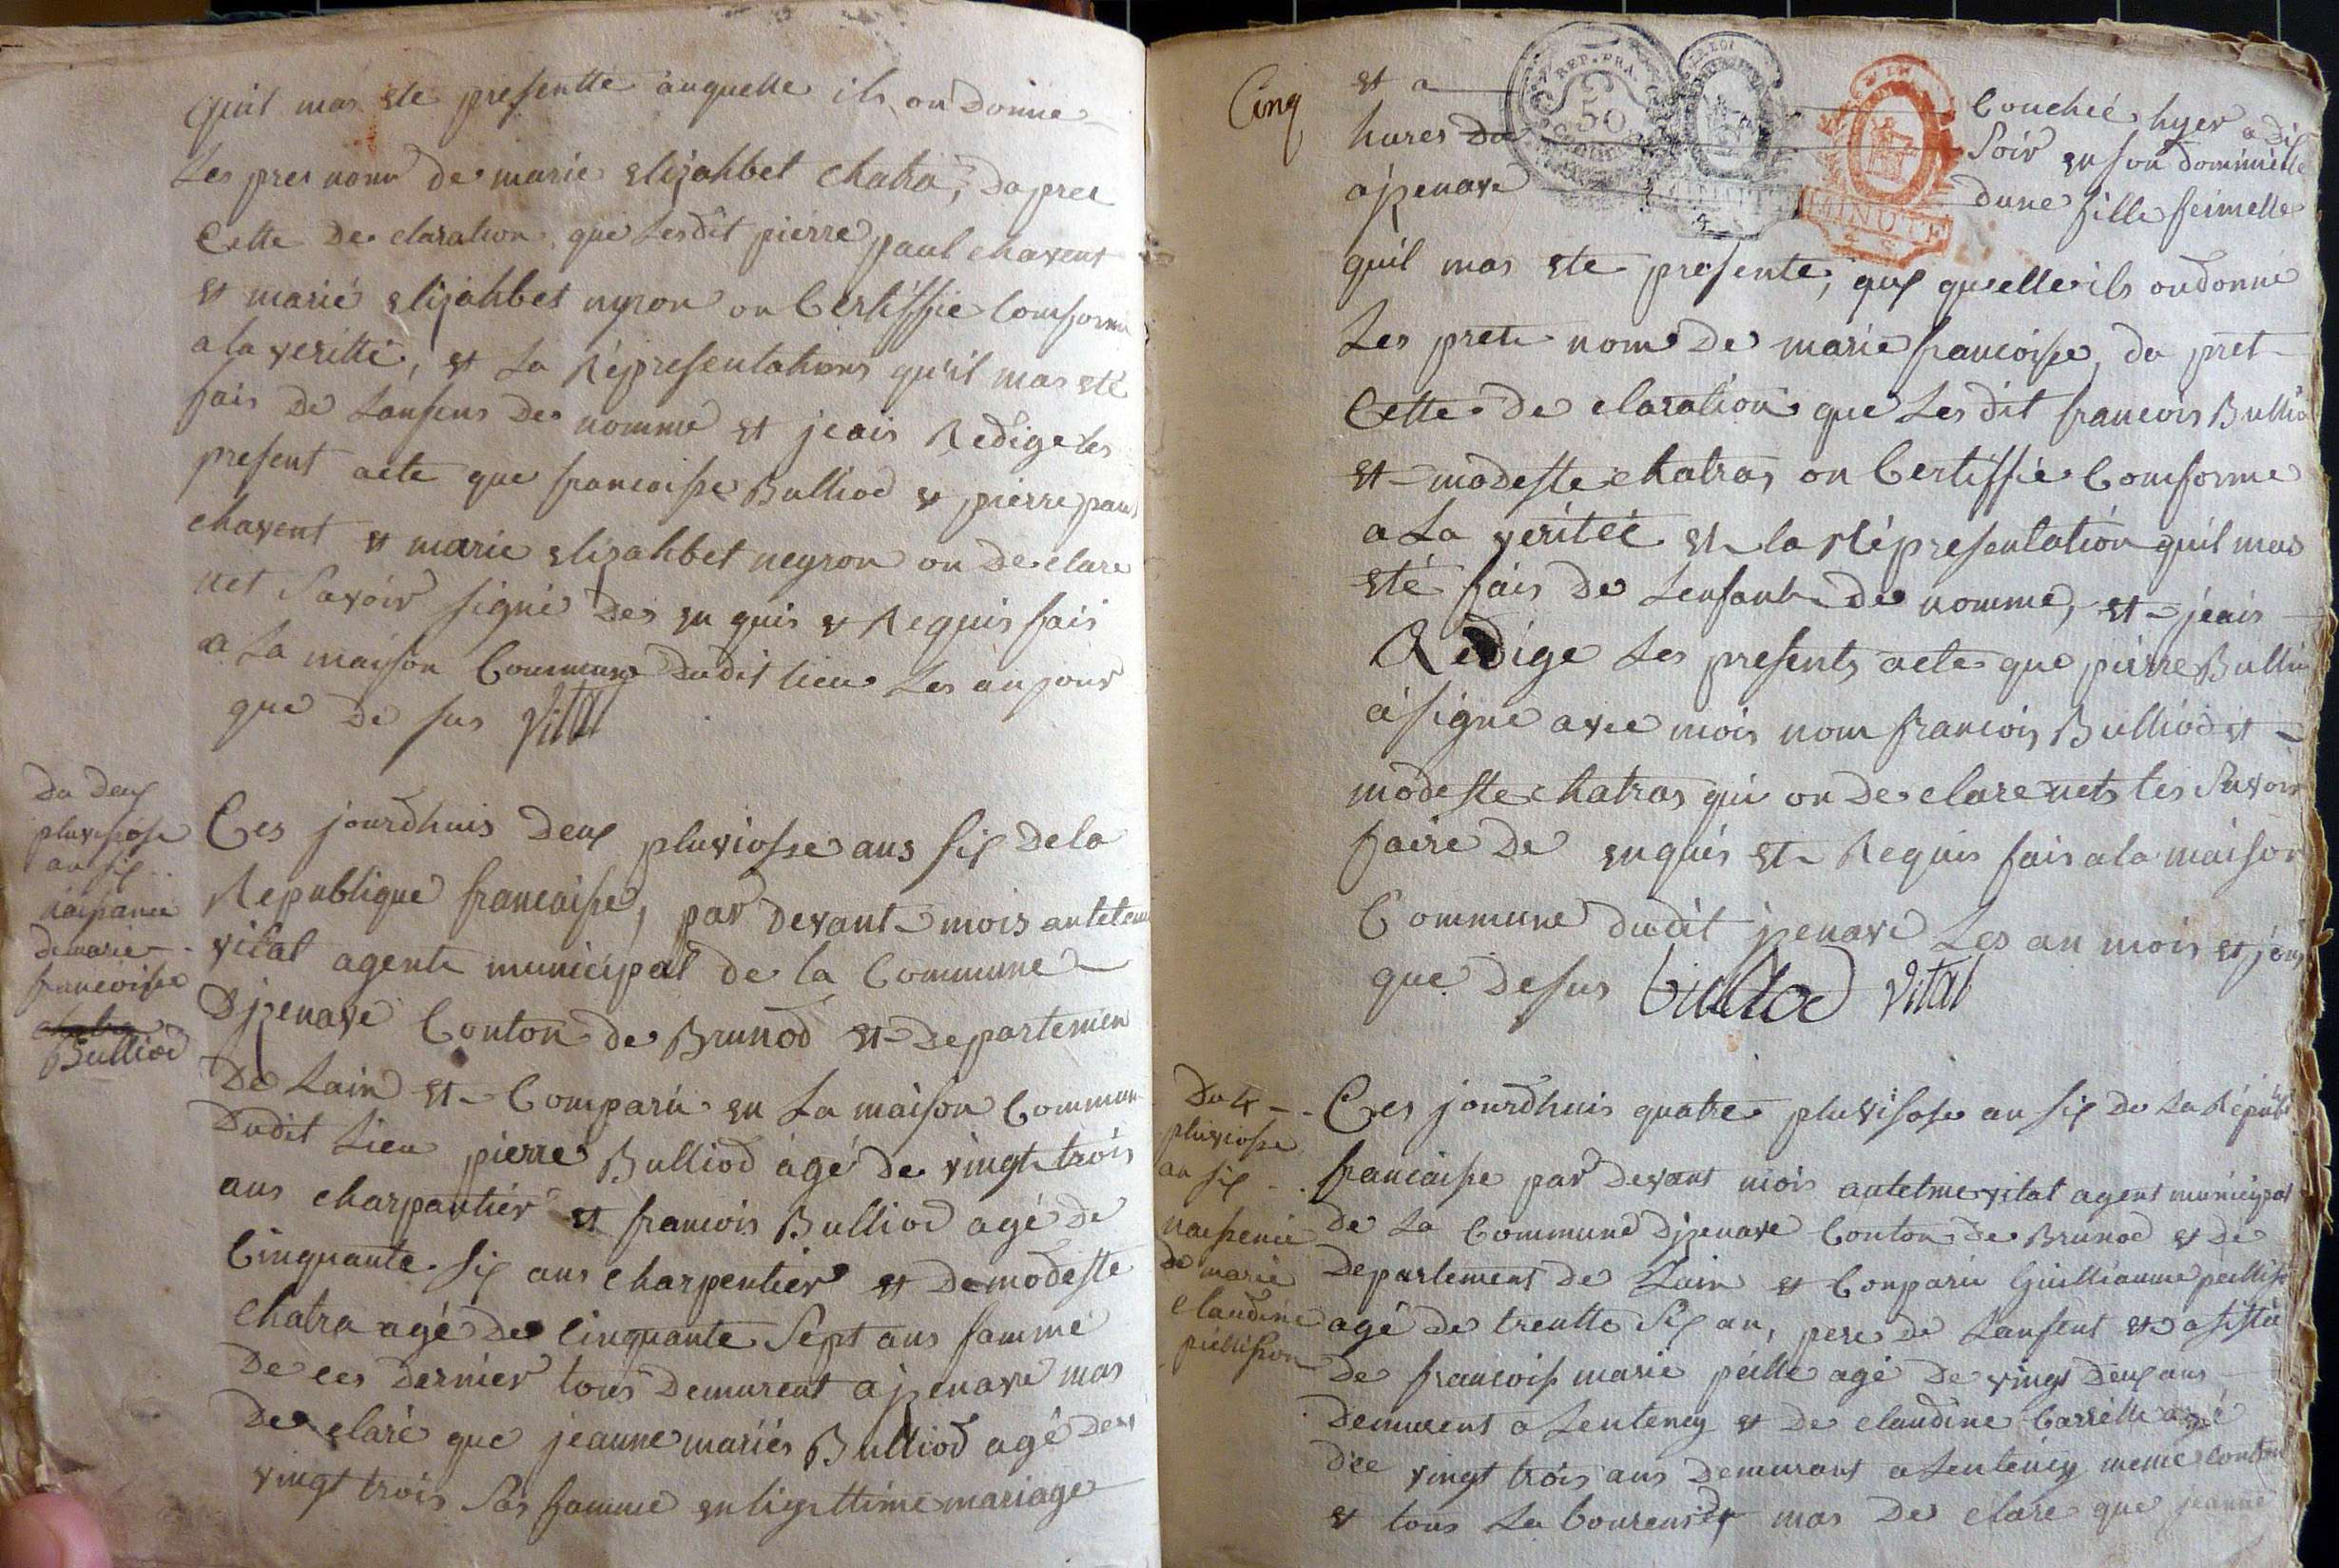 quil mas ete presentte auquelle ils on donne
Les prei nom de marie elizahbet Chatra, dapret
Cette de claration que Lesdit pierre paul chavent
et marie elizahbet nyron on Certiffie Comforme
a la veritté, et La Répresentations qu'il mas etè
fais de Lansens de nomme et jeais Redige les
present acte que francoisse Bulliod et pierre paul
chavent et marie elizahbet neyron on de clare
net Savoir signé de en quis et Requis fais
a La maison Commune dudit lieu Les an jour
que de sus Vital
Du deux
pluviosse
an six
naissance
de marie
francoisse
Bulliod
Ces jourdhuis deux pluviosse ans six de la
Republique francaisse, par devant mois antetme
vital agente municipal de la Commune
Djzenave Conton de Brunod et departemen
De Lain et Comparu en La maison Commun
Dudit Lieu pierre Bulliod âgé de vingt trois
ans charpantier et francois Bulliod agé de
Cinquante six ans charpentier et de modeste
Chatra agé de Cinquante Sept ans famme
De ces dernier tous demurent a jzenave mas
De claré que jeanne mariés Bulliod agé de
vingt trois Sas famme en ligittime mariage
Cinq
et a Couchée hyer a dix
hures du Soir en son dominielle
a jzenave dune fille feimelle
REP. FRA.
50
MINUTE
quil mas ete presente, quelle ils on donne
Les prete nom de marie francoisse, da pret
Cette de claration que Les dit francois Bullio
et modeste chatras on Certiffié Comforme
a La véritéé et la Répresentation quil mas
eté fais de Lensant de nomme, et jeais
Redige Les presents acte que pierre Bullio
a signe avec mois nom francois Bulliod et
modeste chatras qui on de clare net les Savoir
faire de enquis et Requis fais a la maison
Commune dudit jzenave Les an mois et jour
que desus Bulliod Vital
Du 4
pluviosse
an six
naissence
de marie
Claudine
pélisson
Ces jourdhuis quatre pluvisose an six de La Répub
francaisse par devant mois antetme vital agent municipal
de La Commune Djzenave Conton de Brunod et de
Departement de Lain et Conparu Guilliaume pellisso
agé de trentte Six an, pere de Lansent et asistée
de francois marie peille agé de vingt deux ans
demurent a Lentency et de Claudine Carrélle agé
dee vingt trois ans demurant a Lenteney meme Conton
et tous La boureus et mas de clare que jeanne